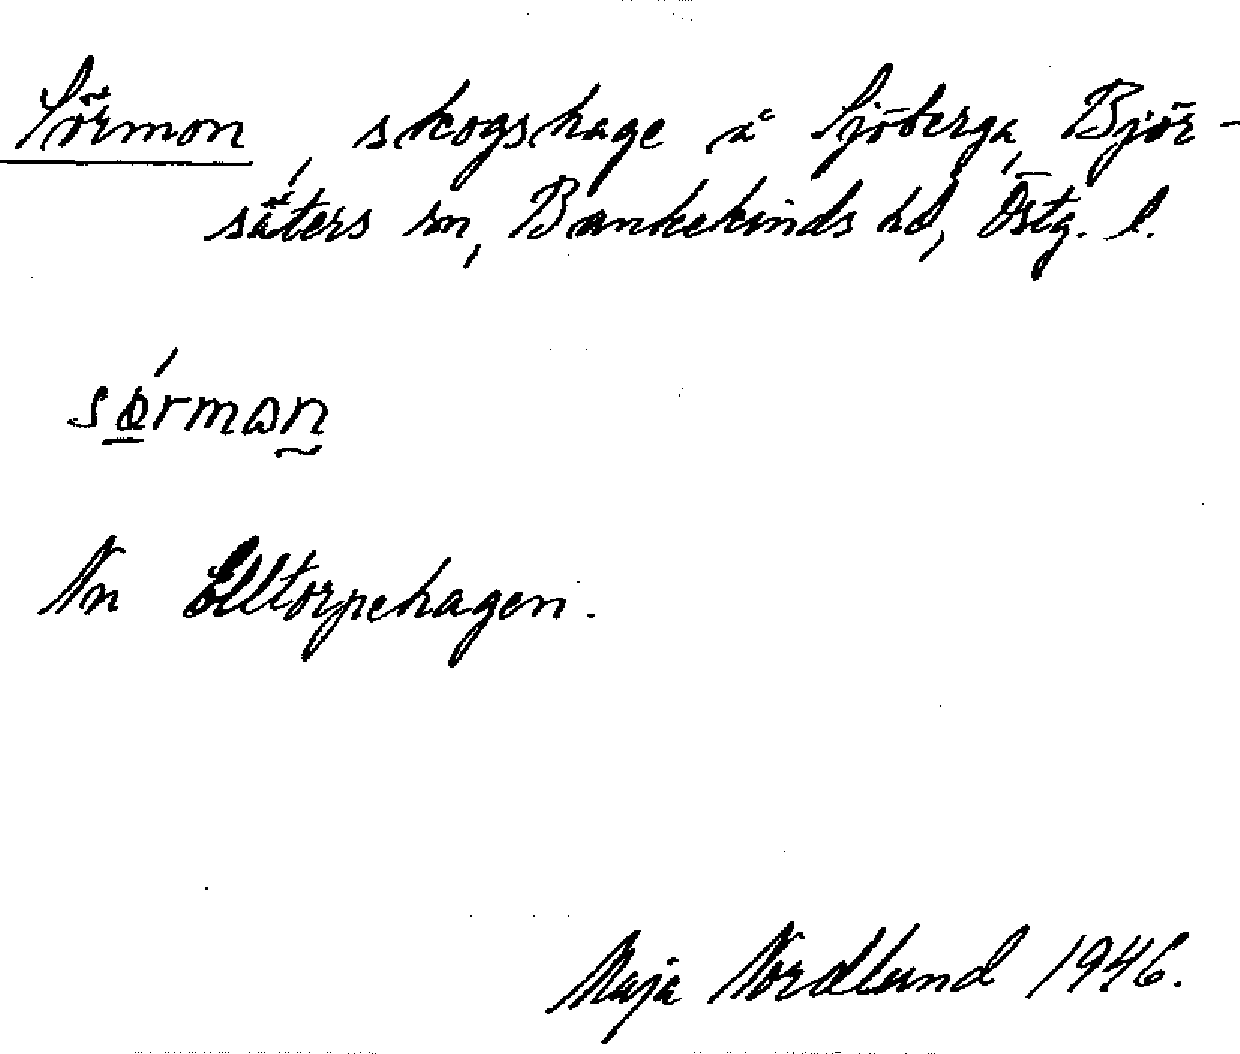 Sörmon, skogshage å Sjöberga, Björ-
säters sn, Bankekinds hd, Östg. l.
sørmωn
Nn Elltorpehagen.
Maja Nordlund 1946.